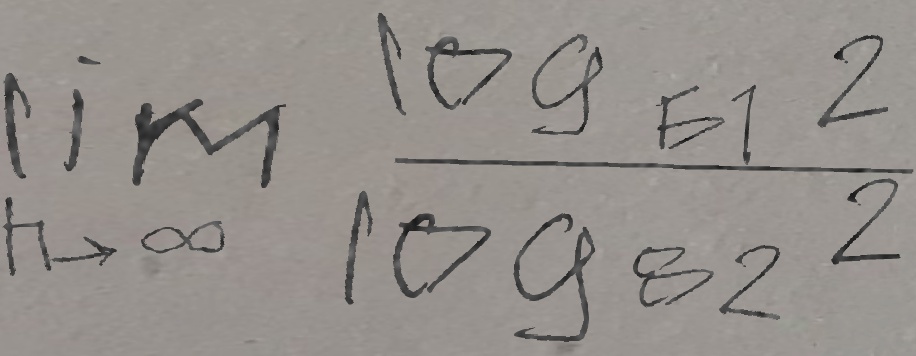 \lim_{h \to \infty} \frac{\log_{51} 2}{\log_{82} 2}